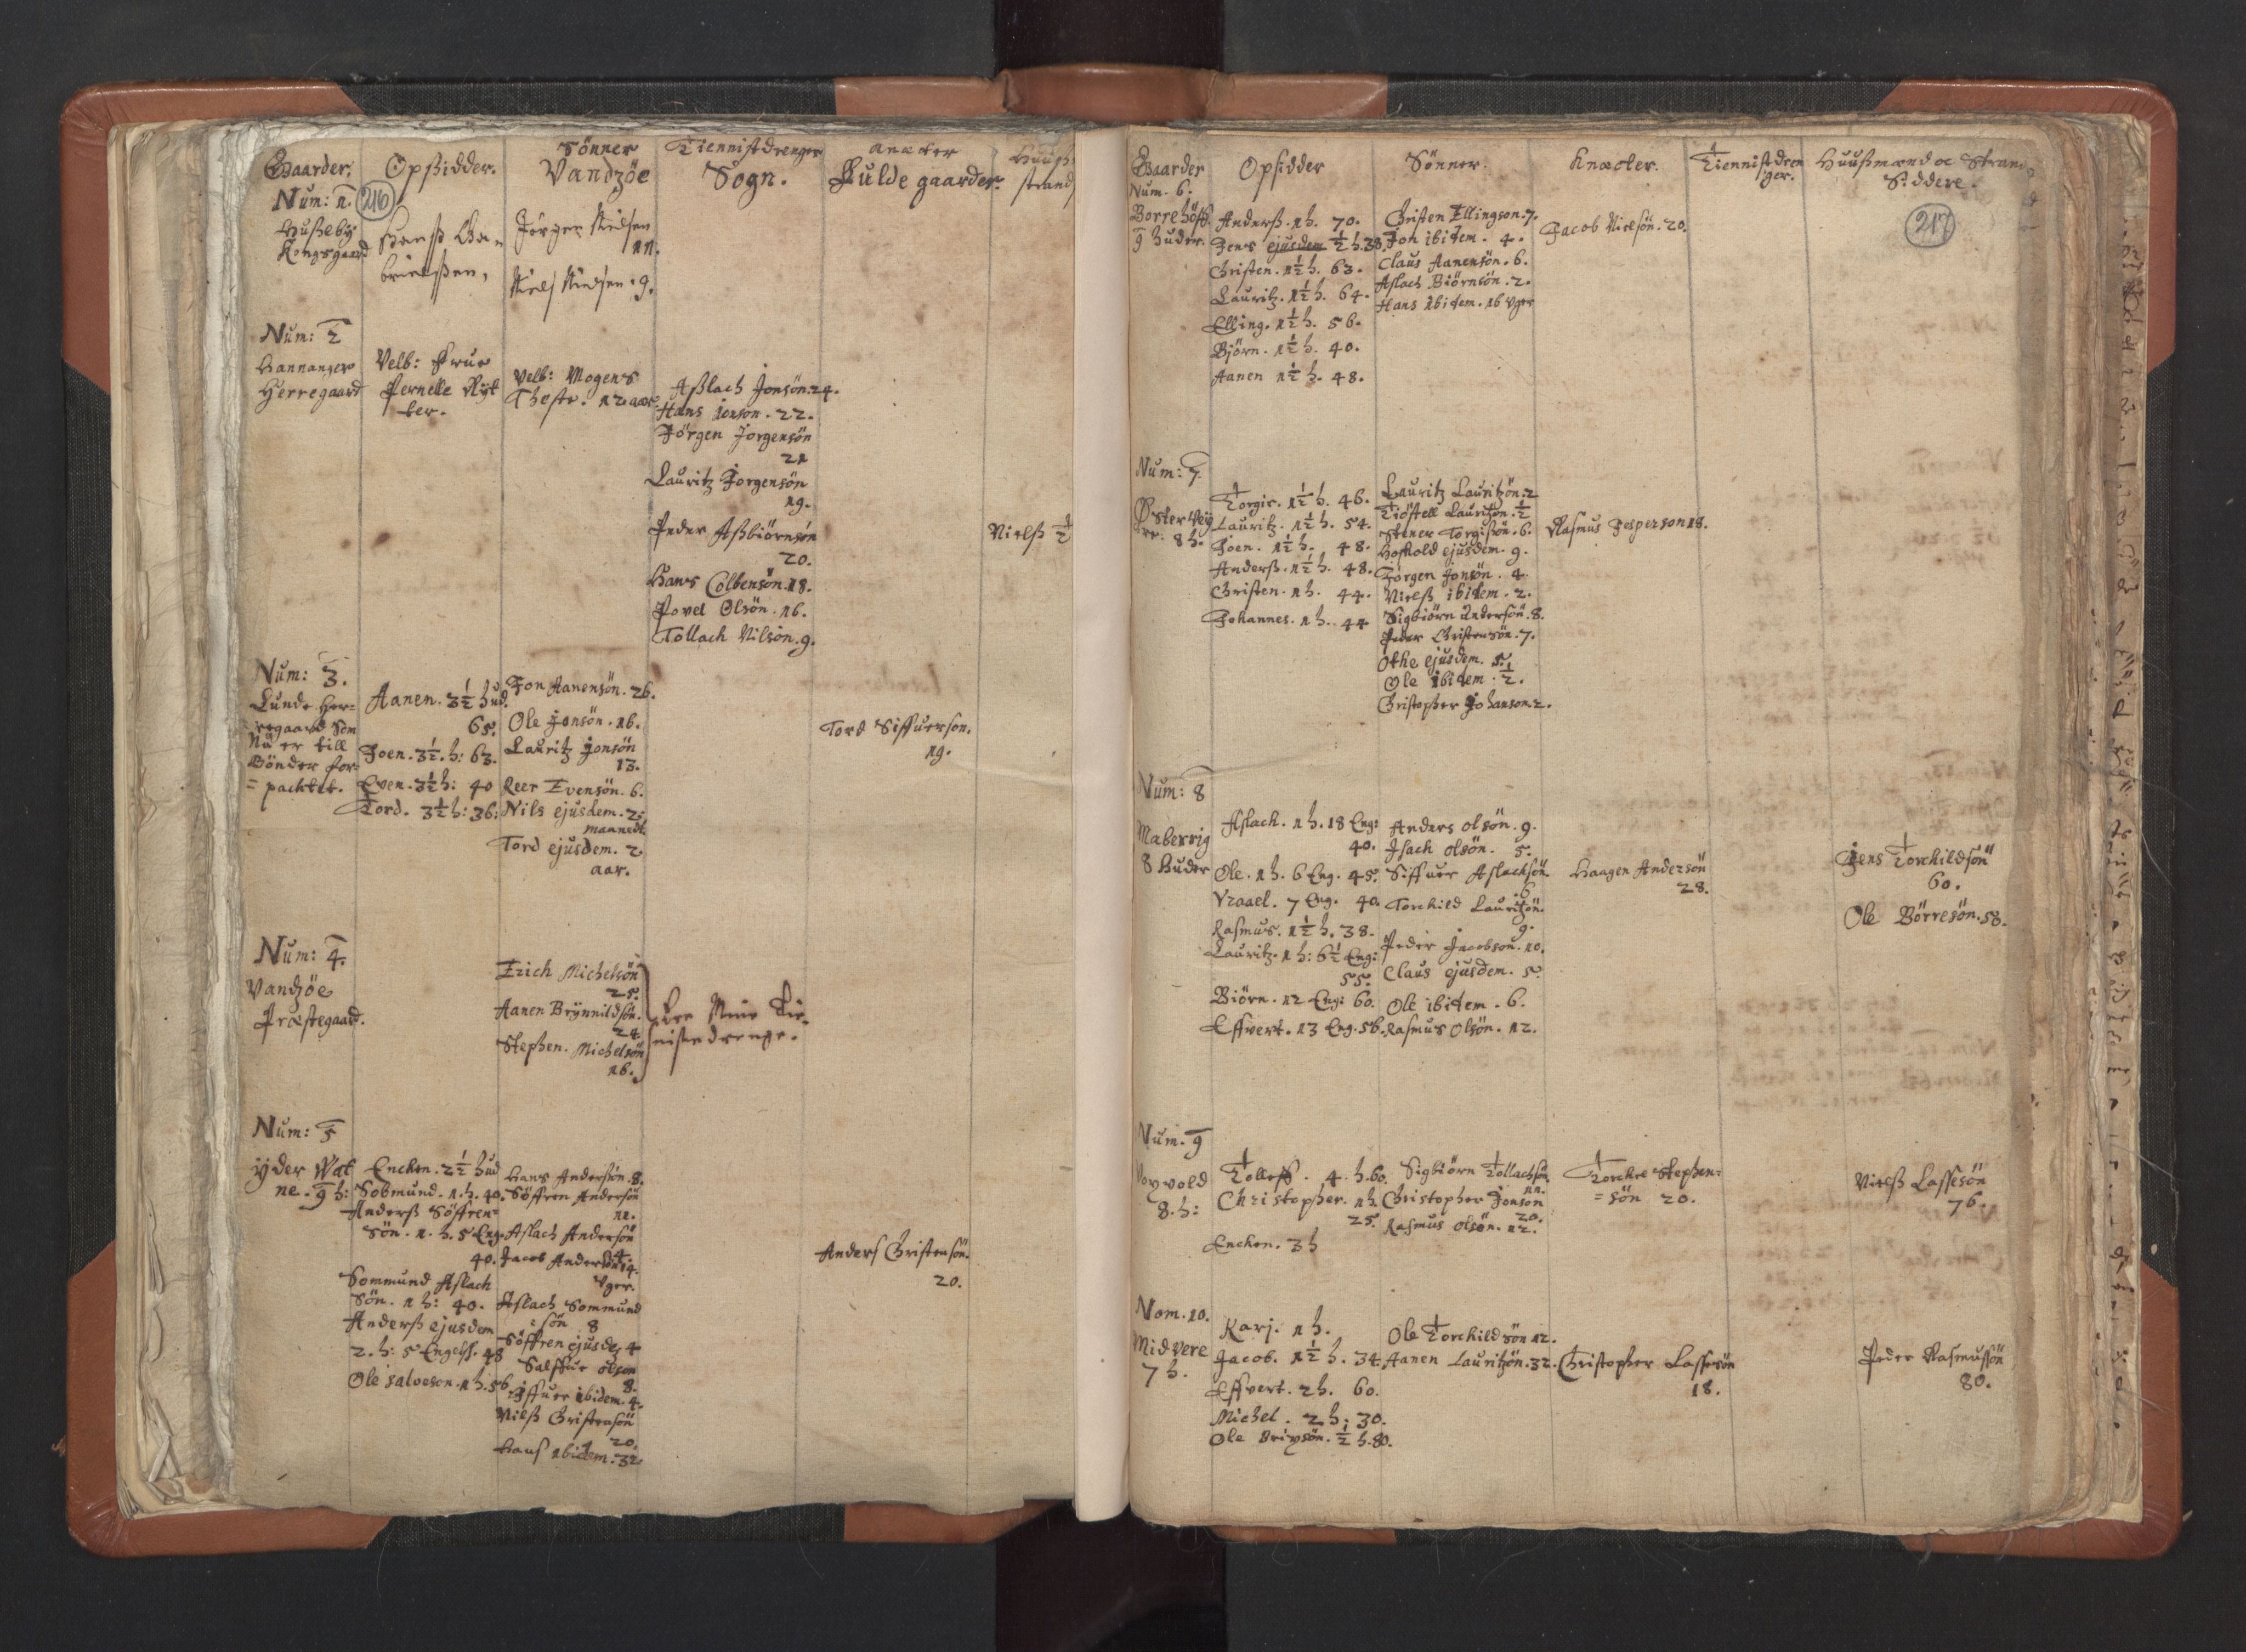 Gaarder. Opsidder. Sønner Tiennistdrenger Knæcter Huuß
Vandzøe Sogn. Fulde gaarder. strand
Num: 1. 216
Hußeby
Kongsgaard
Hanß Ga-
brielßen,
Jørgen Nielsen
11.
Niels Nielsen. 9.
Num: 2
Hannanger
Herregaard
Velb: Frue
Pernelle Ryt
ter.
Velb: Mogens
Theste. 12 aar.
Aßlach Jonsön. 24.
Hans jonson. 22.
Jörgen Jorgensön
21
Lauritz Jorgensön
19.
Peder Aßbiörnsön
20.
Hans Colbensön. 18.
Povel Olsön. 16.
Tollach Nilsön. 9.
Nielß ½
Num: 3.
Lunde Her=
regaard som
Nu er till
Bönder for=
= packtet.
Aanen. 3½ hud.
65.
Joen. 3½. h: 63.
Even. 3½ h: 40
Tord. 3½ h: 36.
Jon Aanensön. 26.
Ole Jonsön. 16.
Lauritz Jonsön
13.
Reer Evensön. 6.
Nils ejusdem. 2.
manneder
Tord ejusdem. 2
aar.
Tord Siffuerson.
19.
Num: 4.
Vandzöe
Præstegaard.
Erich Michelsön
25.
Aanen Brÿnnildsön.
24.
Stephen. Michelsön
16.
Ere Mine Tie-
nistedrenge.
Num: 5
ÿder Wat
ne. 9 h:
Enchen. 2½ hud
Sobmund. 1. h. 40.
Anderß Söffren=
Sön. 1. h. 5 Eng.
40.
Sommund Aslach
Sön. 1 h: 40.
Anderß ejusdem
2. h: 5 Engelß. 48
Ole salveson. 1 h. 56.
Hans Andersön. 8.
Söffren Andersön
12.
Aslach Andersön
4.
Jacob Andersön 14.
Vger.
Aslach Sommund
= sön 8
Söffren ejusdem 4
Salffue olson
8.
Siffuer ibidem. 4.
Nielß Christensön
20.
Hans ibidem. 32.
Anders Christensön.
20.
Gaarder Opsidder Sönner. Knæcter. Tiennistdren
ger. Huußmænd oc Strand
Siddere.
217
Num. 6.
Borrehöfft.
9 huder.
Anderß. 1 h. 70.
Jens ejusdem ½ h. 38.
Christen. 1½ h. 63.
Lauritz. 1½ h. 64.
Elling. 1½ h. 56.
Björn. 1½ h. 40.
Aanen 1½ h. 48.
Christen Ellingson. 7.
Jon ibidem. 4.
Claus Aanensön. 6.
Aslach Biörnsön. 2.
Hans ibidem. 16 Vger
Jacob Nielsön. 20.
Num: 7.
Øster Veÿ
8 h.
Torgir. 1½ h. 46.
Lauritz. 1½ h. 54.
Joen. 1½ h. 48.
Anderß. 1½ h. 48.
Christen. 1 h. 44.
Johannes. 1 h. 44
Lauritz Lauritzön. 2
Tiöstell Lauritzön. ½
Stener Torgisön. 6.
Hoskold ejusdem. 9.
Jörgen Jonsön. 4.
Nielß ibidem. 2.
Sigbiörn Andersön. 8.
Peder Christensön. 7.
Othe ejusdem. 5.
Ole ibidem. ½.
Christopher Johanson. 2.
Rasmus Jesperson 18.
Num: 8
Maberrig
8 Huder
Aslach. 1 h. 18 Eng:
40.
Ole. 1 h. 6 Eng. 45.
Vraael. 7 Eng. 40.
Rasmus. 1½ h. 38.
Lauritz. 1 h: 6½ Eng:
55.
Biörn. 12 Eng: 60.
Effvert. 13 Eng. 56.
Anders olsön. 9.
Isach olsön. 5.
Siffuer Aslachsön.
6.
Torchild Lauritzön.
9.
Peder Jacobson. 10.
Claus ejusdem. 5.
Ole ibidem. 6.
Rasmus Olsön. 12.
Haagen Andersön
28.
Jens Torchildsön
60.
Ole Börresön. 58.
Num. 9
Voyvold
8. h:
Tolleff. 4. h. 60.
Christopher. 1 h
25.
Enchen. 3 h
Sigbiörn Tollachsön
11.
Christopher Jonson
20.
Rasmus olsön. 12.
Torchre Stephen=
= sön 20.
Nielß Lassesön
76.
Nom. 10.
Midvere
7 h.
Karj. 1 h.
Jacob. 1½ h. 34.
Effvert. 2 h. 60.
Michel. 2 h: 30.
Ole Brixsön. ½ h. 80.
Ole Torchildsön 12.
Aanen Lauritzön. 32.
Christopher Lassesön
18.
Peder Rasmussön
80.